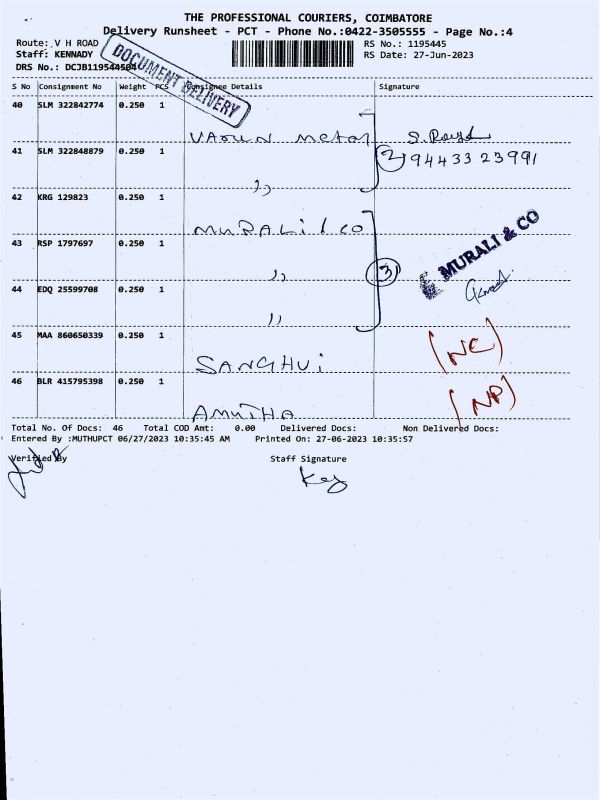 THE PROFESSIONAL COURIERS, COIMBATORE
Delivery Runsheet - PCT - Phone No.:0422-3505555 - Page No.:4
Route: V H ROAD RS No.: 1195445
Staff: KENNADY RS Date: 27-Jun-2023
DRS No.: DCJB1195444504
DOCUMENT DELIVERY
S No Consignment No Weight PCS Consignee Details Signature
40 SLM 322842774 0.250 1
VARUN Metal S.
41 SLM 322848879 0.250 1 (2) 94433 23991
,,
42 KRG 129823 0.250 1
MURALI / CO
43 RSP 1797697 0.250 1 MURALI & CO
,, (3)
44 EDQ 25599708 0.250 1
,,
45 MAA 860650339 0.250 1 (NC)
SANGHVi
46 BLR 415795398 0.250 1 (NP)
AMUTHA
Total No. Of Docs: 46 Total COD Amt: 0.00 Delivered Docs: Non Delivered Docs:
Entered By :MUTHUPCT 06/27/2023 10:35:45 AM Printed On: 27-06-2023 10:35:57
Verified By Staff Signature